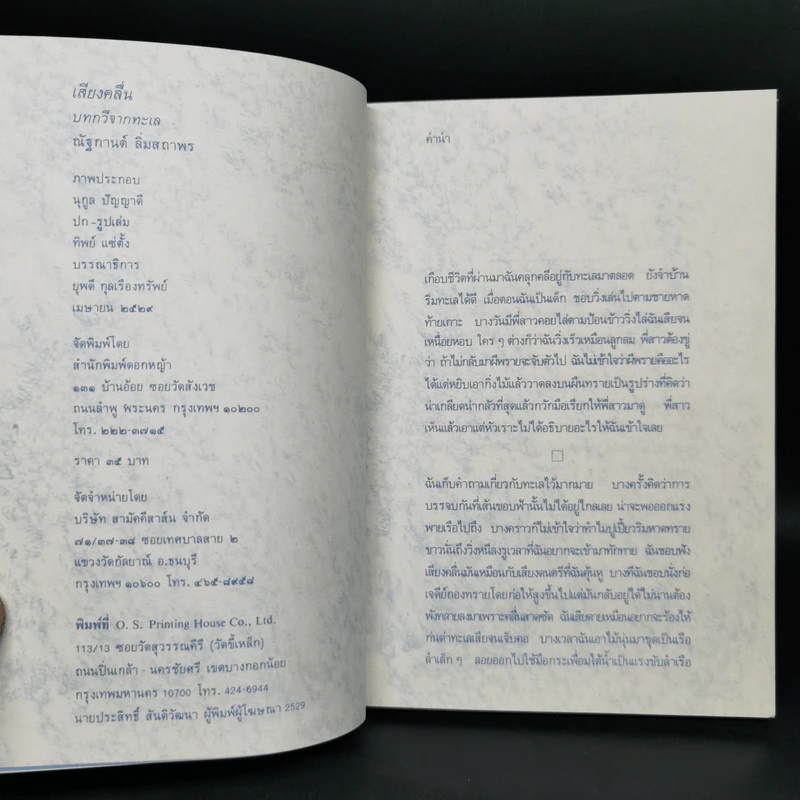 เสียงคลื่น
บทกวีจากทะเล
ณัฐกานต์ ลิ่มสถาพร
ภาพประกอบ
นุกูล ปัญญาดี
ปก-รูปเล่ม
ทิพย์ แซ่ตั้ง
บรรณาธิการ
ยุพดี กุลเรืองทรัพย์
เมษายน ๒๕๒๙
จัดพิมพ์โดย
สำนักพิมพ์ดอกหญ้า
๑๓๑ บ้านอ้อย ซอยวัดสังเวช
ถนนลำพู พระนคร กรุงเทพฯ ๑๐๒๐๐
โทร. ๒๒๒-๓๗๑๕
ราคา ๓๕ บาท
จัดจำหน่ายโดย
บริษัท สามัคคีสาส์น จำกัด
๗๑/๓๗-๓๘ ซอยเทศบาลสาย ๒
แขวงวัดกัลยาณ์ อ.ธนบุรี
กรุงเทพฯ ๑๐๖๐๐ โทร. ๔๖๕-๘๙๕๘
พิมพ์ที่ O. S. Printing House Co., Ltd.
113/13 ซอยวัดสุวรรณคีรี (วัดขี้เหล็ก)
ถนนปิ่นเกล้า - นครชัยศรี เขตบางกอกน้อย
กรุงเทพมหานคร 10700 โทร. 424-6944
นายประสิทธิ์ สันติวัฒนา ผู้พิมพ์ผู้โฆษณา 2529
คำนำ
เกือบชีวิตที่ผ่านมาฉันคลุกคลีอยู่กับทะเลมาตลอด ยังจำบ้าน
ริมทะเลได้ดี เมื่อตอนฉันเป็นเด็ก ชอบวิ่งเล่นไปตามชายหาด
ท้ายเกาะ บางวันมีพี่สาวคอยไล่ตามป้อนข้าววิ่งไล่ฉันเสียจน
เหนื่อยหอบ ใคร ๆ ต่างก็ว่าฉันวิ่งเร็วเหมือนลูกลม พี่สาวต้องขู่
ว่า ถ้าไม่กลับมาผีพรายจะจับตัวไป ฉันไม่เข้าใจว่าผีพรายคืออะไร
ได้แต่หยิบเอากิ่งไม้แล้ววาดลงบนผืนทรายเป็นรูปร่างที่คิดว่า
น่าเกลียดน่ากลัวที่สุดแล้วกวักมือเรียกให้พี่สาวมาดู พี่สาว
เห็นแล้วเอาแต่หัวเราะไม่ได้อธิบายอะไรให้ฉันเข้าใจเลย
ฉันเก็บคำถามเกี่ยวกับทะเลไว้มากมาย บางครั้งคิดว่าการ
บรรจบกันที่เส้นขอบฟ้านั้นไม่ได้อยู่ไกลเลย น่าจะพอออกแรง
พายเรือไปถึง บางคราวก็ไม่เข้าใจว่าทำไมปูเปี้ยวริมหาดทราย
ขาวนั่นถึงวิ่งหนีลงรูเวลาที่ฉันอยากจะเข้ามาทักทาย ฉันชอบฟัง
เสียงคลื่นมันเหมือนกับเสียงดนตรีที่ฉันคุ้นหู บางทีฉันชอบนั่งก่อ
เจดีย์กองทรายโดยก่อให้สูงขึ้นไปแต่มันกลับอยู่ได้ไม่นานต้อง
พังทลายลงมาเพราะคลื่นสาดซัด ฉันเสียดายเหมือนอยากจะร้องไห้
ก่นด่าทะเลเสียจนเจ็บคอ บางเวลาฉันเอาไม้นุ่นมาขุดเป็นเรือ
ลำเล็ก ๆ ลอยออกไปใช้มือกระเพื่อมใต้น้ำเป็นแรงขับลำเรือ